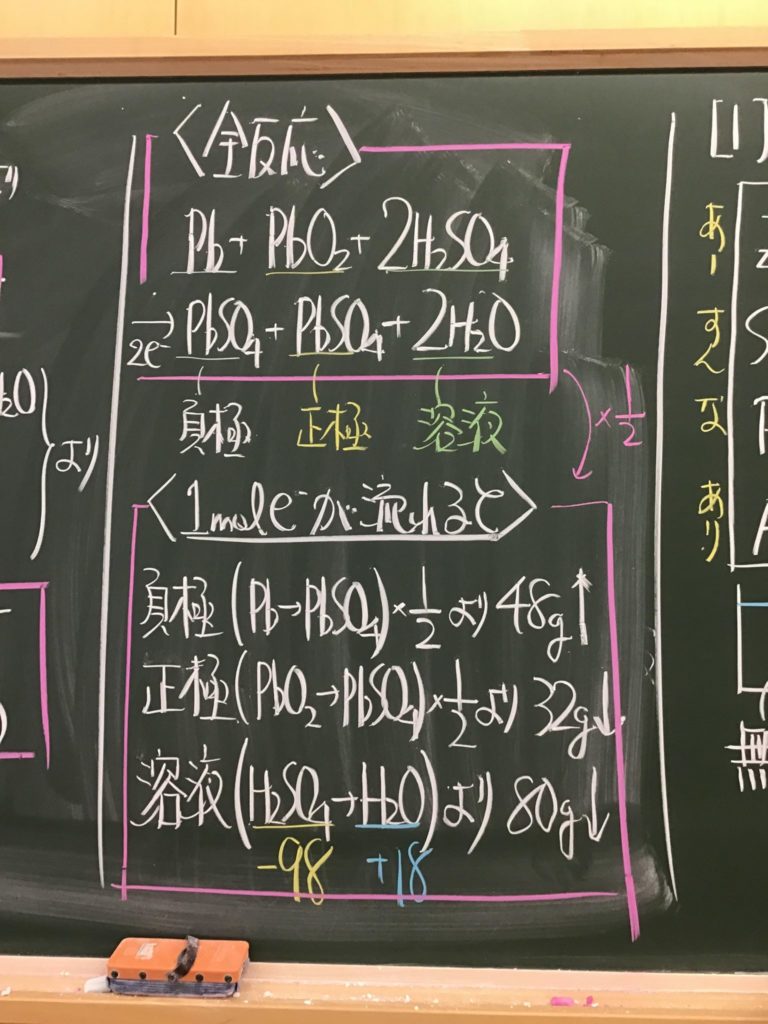 〈全反応〉
Pb + PbO₂ + 2H₂SO₄
→ 2e⁻ PbSO₄ + PbSO₄ + 2H₂O
負極 正極 溶液
×1/2
〈1mol e⁻が流れると〉
負極(Pb→PbSO₄)×1/2より 48g↑
正極(PbO₂→PbSO₄)×1/2より 32g↓
溶液(H₂SO₄→H₂O)より 80g↓
-98 +18
より
[1]
あー
すん
な
あり